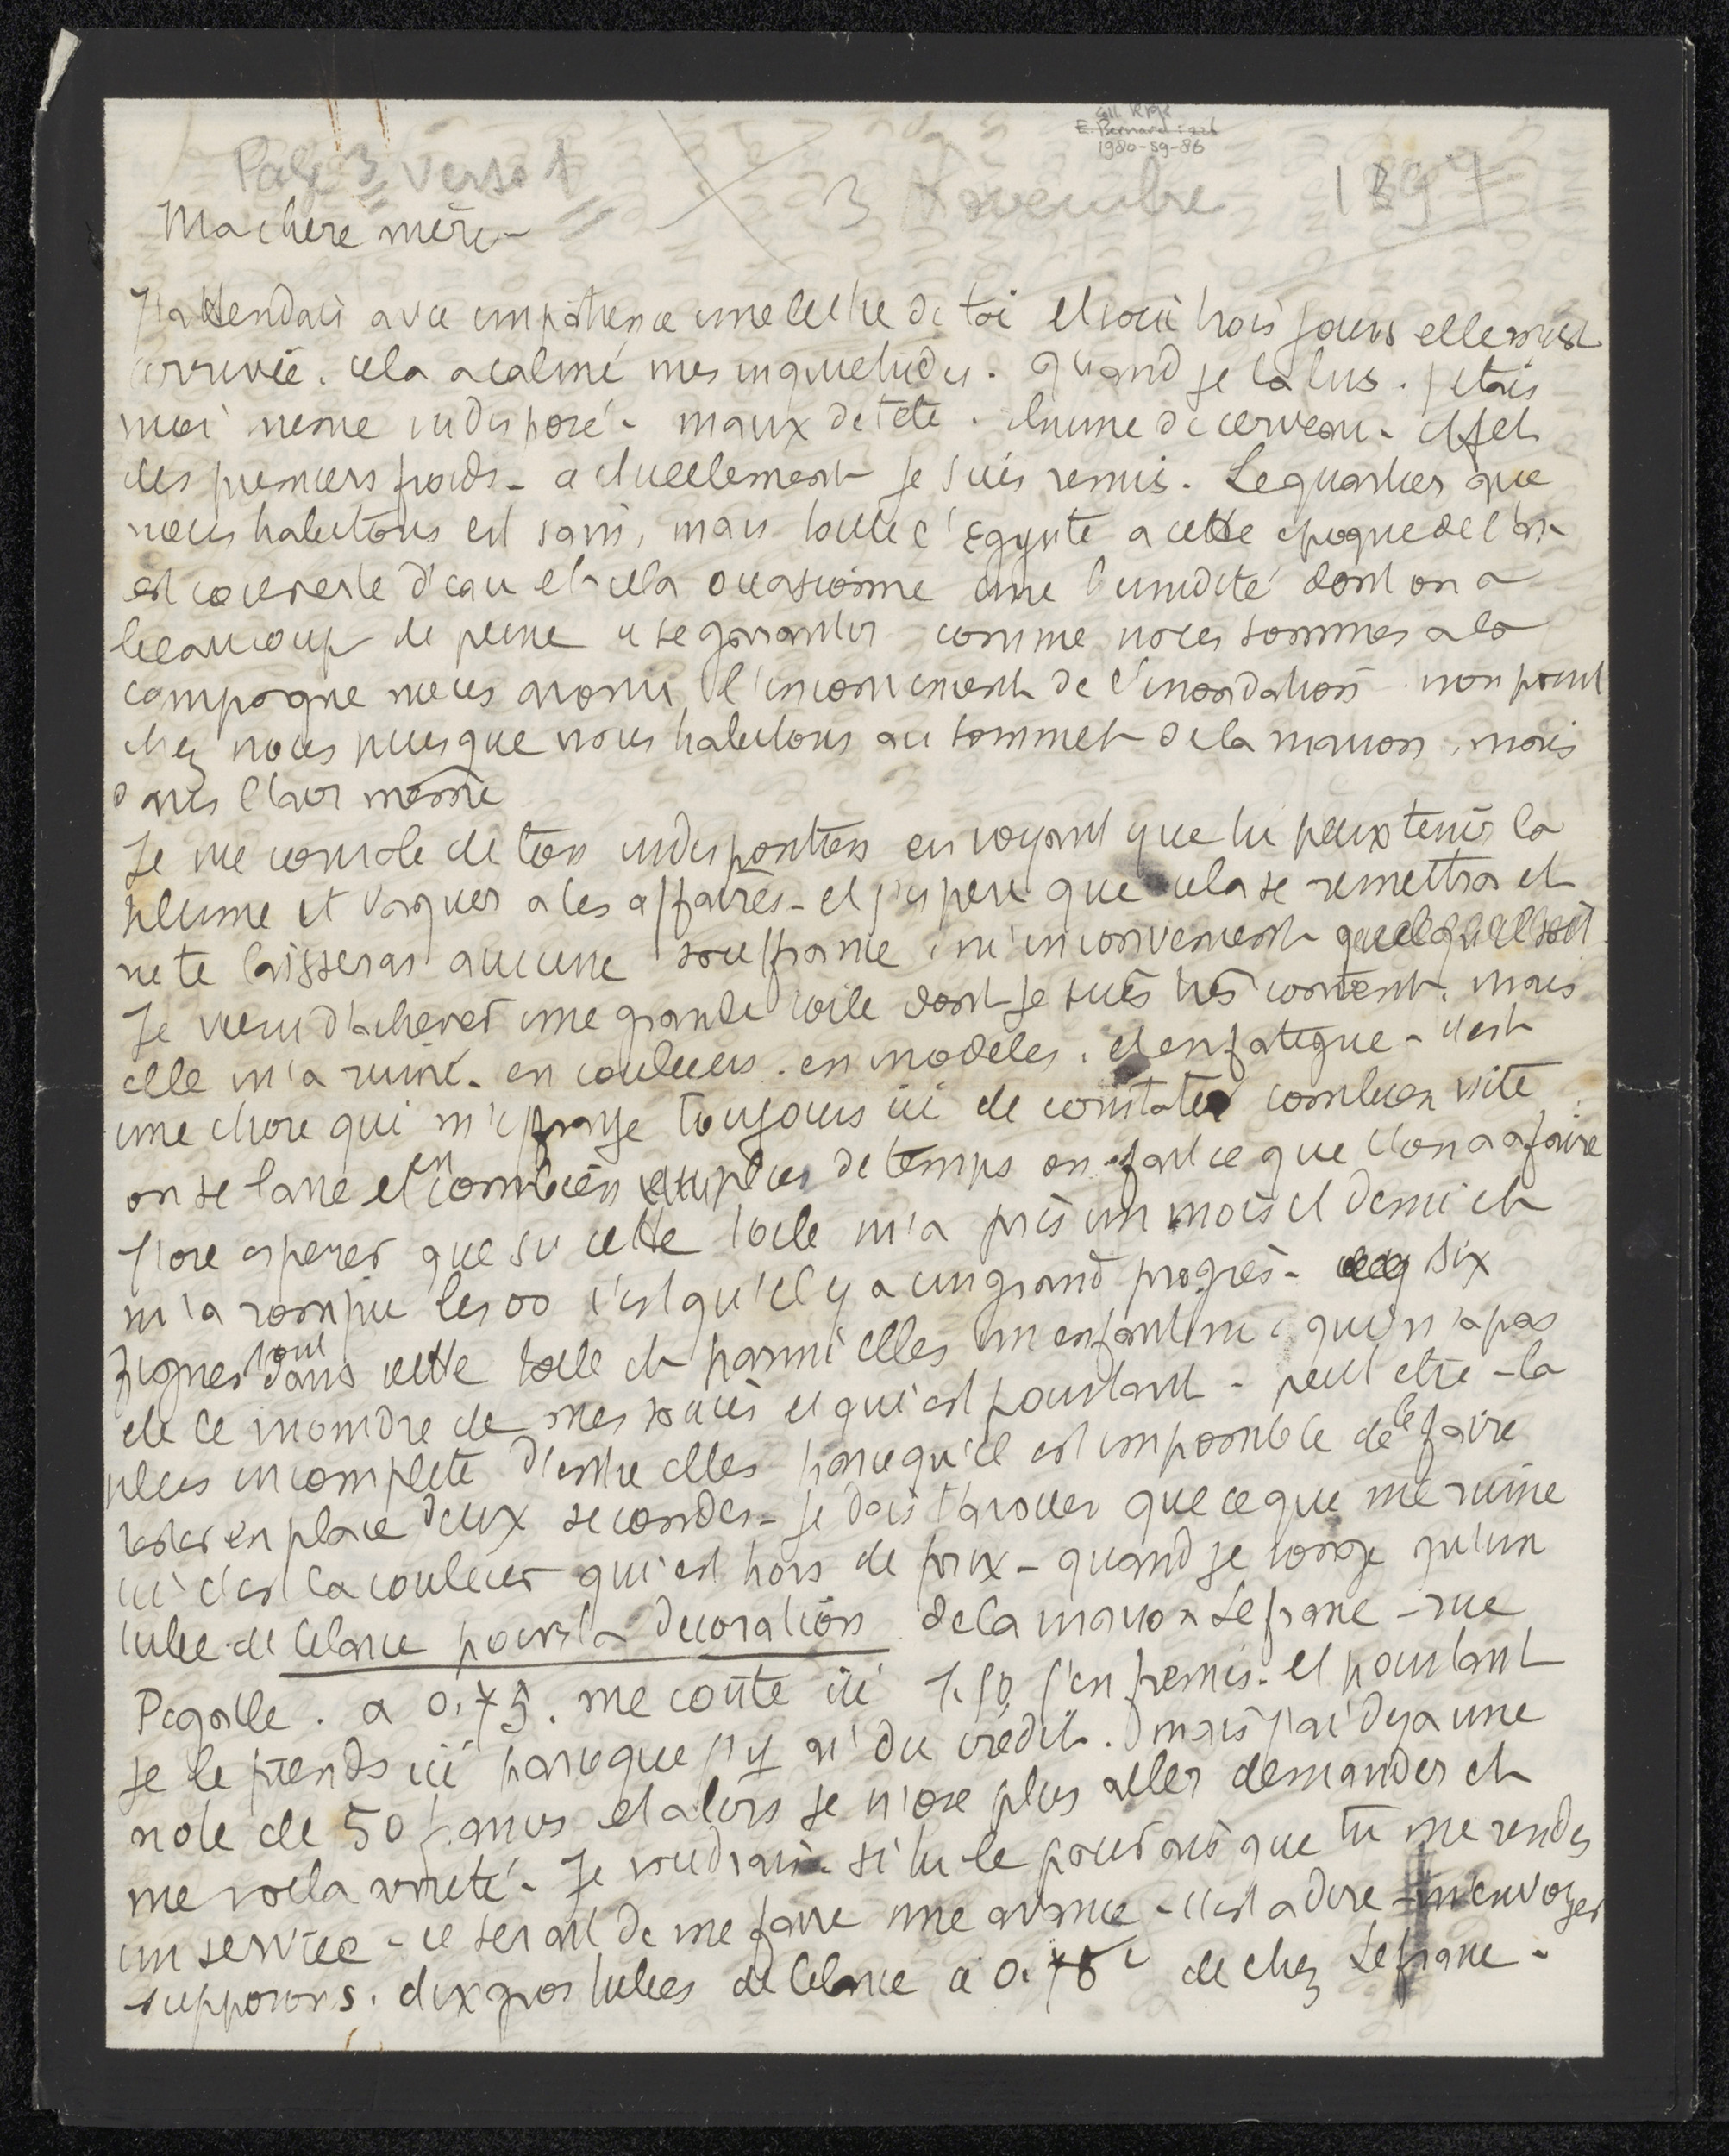 E. Bernard
1980-59-86
Page 3 verso 1
3 Novembre 1897
Ma chere mère -
J'attendais avec impatience une lettre de toi et voici trois jours elle m'est
arrivée. cela a calmé mes inquietudes. Quand je la lus. j'etais
moi meme indisposé - maux de tete. rhume de cerveau - effet
des premiers froids - actuellement je suis remis. Le quartier que
nous habitons est sain, mais toute l'Egypte a cette epoque de l'an
est couverte d'eau et cela occasionne une humidité dont on a
beaucoup de peine a se garantir comme nous sommes a la
campagne nous avons l'inconvenient de l'inondation non point
chez nous puisque nous habitons au sommet de la maison, mais
dans l'air même
Je me console de ton indisposition en voyant que tu peux tenir la
plume et vaquer a tes affaires - et j'espere que cela se remettra et
ne te laisseras aucune souffrance, ni inconvenient quel qu'il soit.
Je viens d'achever une grande toile dont je suis très content. mais
elle m'a ruiné - en couleurs. en modèles. et en fatigue - c'est
une chose qui m'effraye toujours ici de constater combien vite
on se lasse et en combien plus de temps on fait ce que l'on a a faire
J'ose esperer que si cette toile m'a pris un mois et demi et
m'a rompu les os c'est qu'il y a un grand progrès - six
figures sont dans cette toile et parmi elles un enfant nu qui n'a pas
ete le moindre de mes soucis et qui est pourtant - peut etre - la
plus incomplete d'entre elles parcequ'il est impossible de le faire
rester en place deux secondes - je dois t'avouer que ce que me ruine
ici c'est la couleur qui est hors de prix - quand je songe qu'un
tube de blanc pour la decoration de la maison Lefranc - rue
Pigalle. a 0.75. me coûte ici 1.50 j'en fremis - et pourtant
je le prends ici parceque j'y ai du crédit. mais j'ai deja une
note de 50 francs et alors je n'ose plus aller demander et
me voila arreté - Je voudrais si tu le pouvais que tu me rendes
un service - ce serait de me faire une avance - c'est a dire - m'envoyer
supposons. dix gros tubes de blanc a 0.75 c de chez Lefranc -